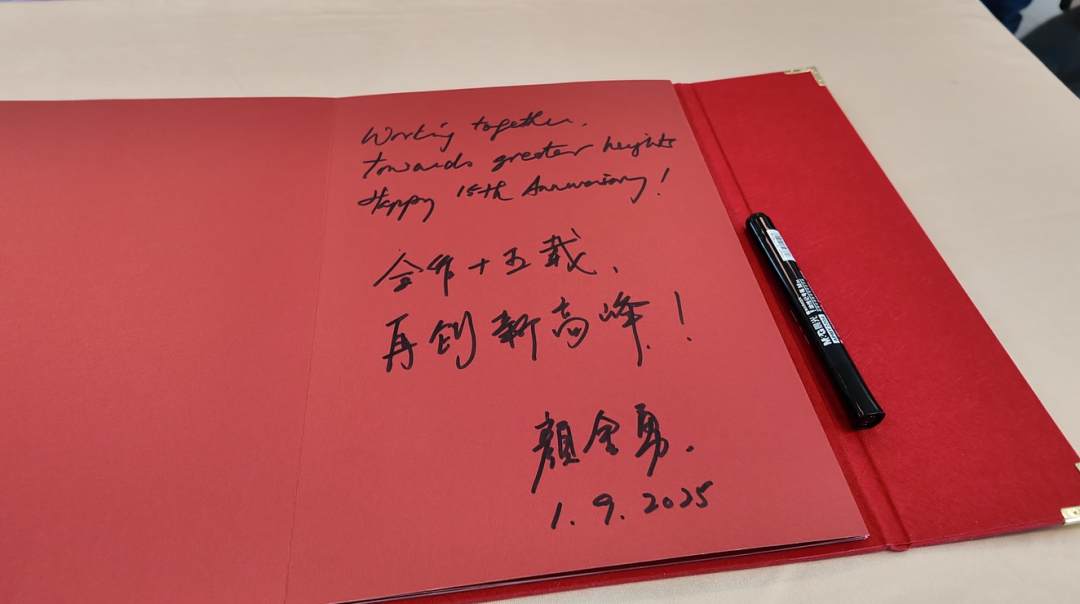 Working together.
towards greater heights
Happy 15th Anniversary!
合作十五载、
再创新高峰！
颜金勇.
1.9.2025
M&G晨光